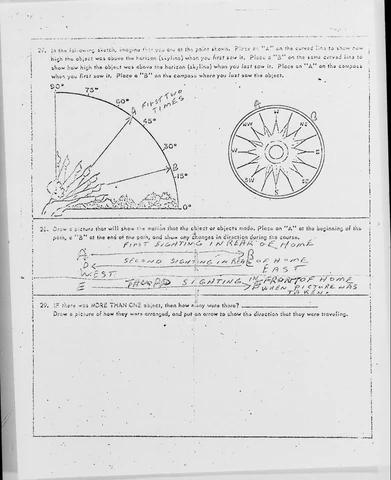 27. In the following sketch, imagine that you are at the point shown. Place an "A" on the curved line to show how
high the object was above the horizon (skyline) when you first saw it. Place a "B" on the same curved line to
show how high the object was above the horizon (skyline) when you last saw it. Place an "A" on the compass
when you first saw it. Place a "B" on the compass where you last saw the object.
90° 75° 60° 45° 30° 15° 0°
A FIRST TWO
TIMES
B
A B
N NE E SE S SW W NW
28. Draw a picture that will show the motion that the object or objects made. Place an "A" at the beginning of the
path, a "B" at the end of the path, and show any changes in direction during the course.
FIRST SIGHTING IN REAR OF HOME
A B
D SECOND SIGHTING IN REAR OF HOME
WEST EAST
E THIRD SIGHTING IN FRONT OF HOME
F WHEN PICTURE WAS
TAKEN.
29. IF there was MORE THAN ONE object, then how many were there?
Draw a picture of how they were arranged, and put an arrow to show the direction that they were traveling.